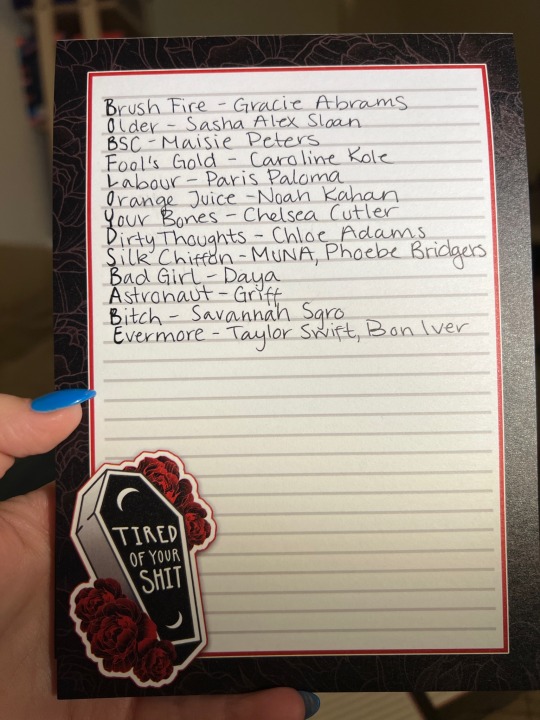 Brush Fire - Gracie Abrams
Older - Sasha Alex Sloan
BSC - Maisie Peters
Fool's Gold - Caroline Kole
Labour - Paris Paloma
Orange Juice - Noah Kahan
Your Bones - Chelsea Cutler
Dirty Thoughts - Chloe Adams
Silk Chiffon - MUNA, Phoebe Bridgers
Bad Girl - Daya
Astronaut - Griff
Bitch - Savannah Sgro
Evermore - Taylor Swift, Bon Iver
TIRED
OF YOUR
SHIT